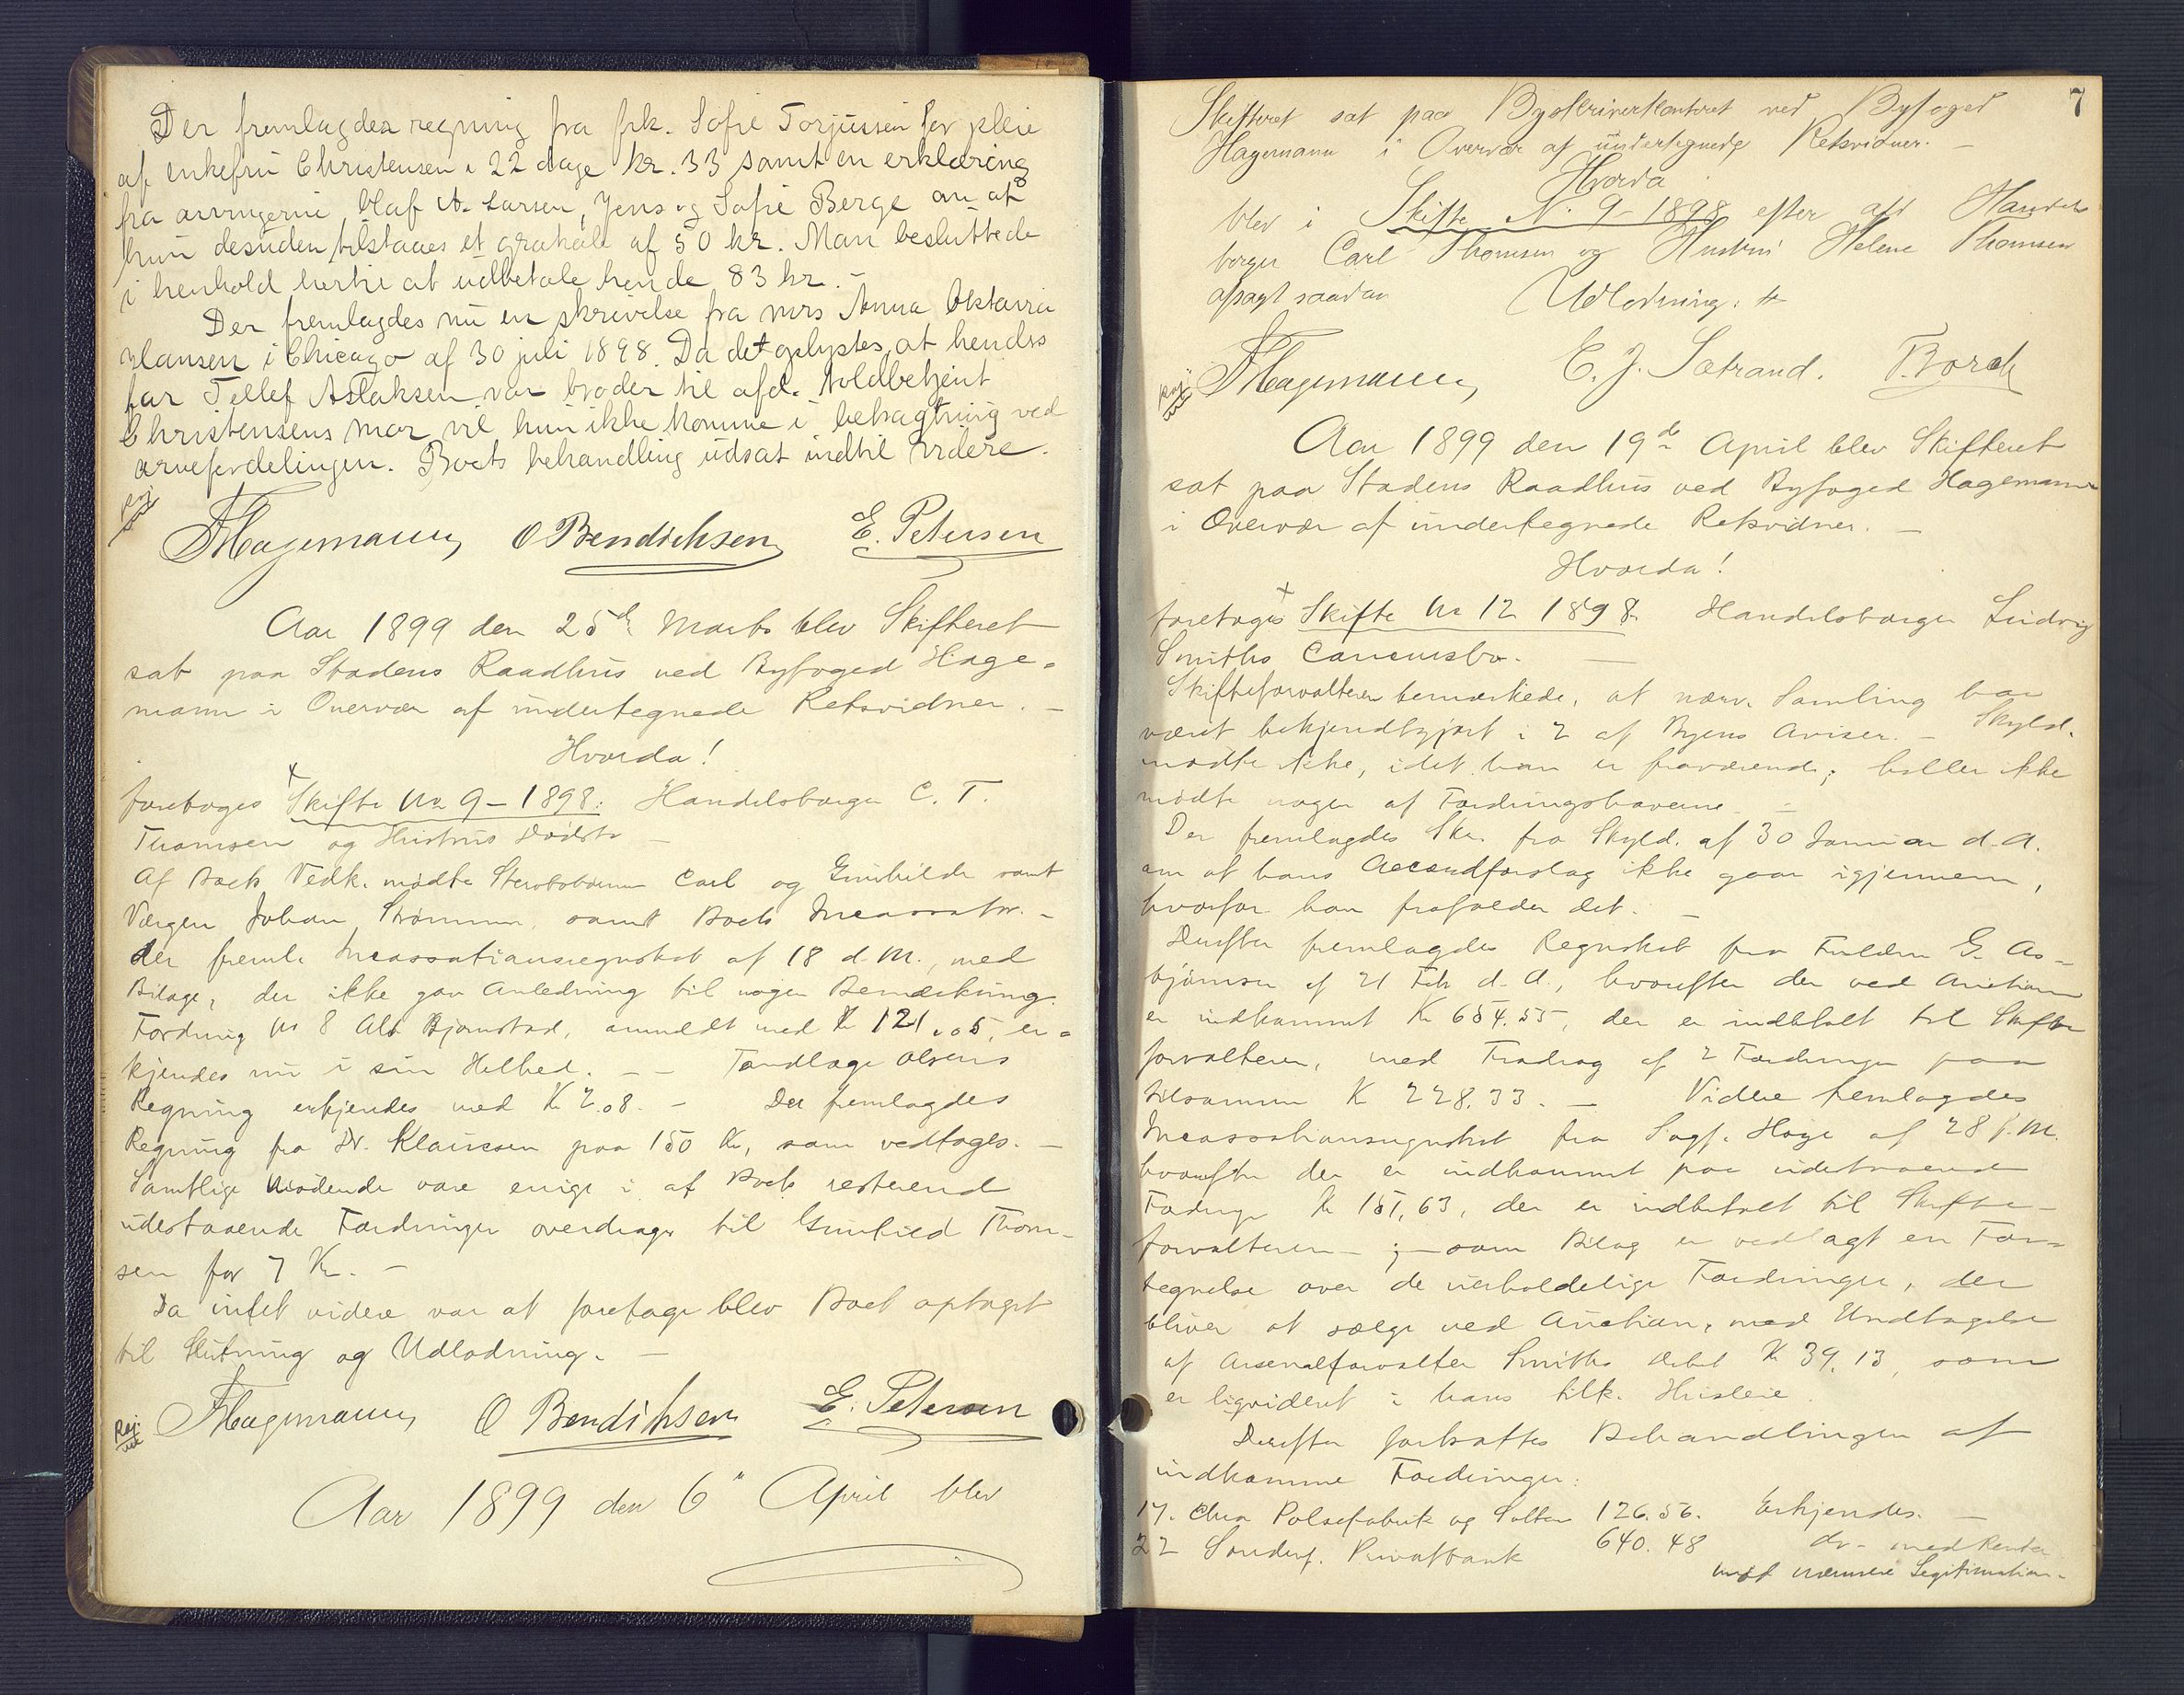 Der fremlagdes regning fra frk. Sofie Torjussen for pleie
af enkefru Christensen i 22 dage kr. 33 samt en erklæring
fra arvingerne Olaf A. Larsen, Jens og Sofie Berge om at
hun desuden tilstaaes et gratiale af 50 kr. Man besluttede
i henhold hertil at udbetale hende 83 kr. -
Der fremlagdes nu en skrivelse fra mrs Anna Oktavia
Hansen i Chicago af 30 juli 1898. Da det oplystes, at hendes
far Tellef Aslaksen var broder til afd. toldbetjent
Christensens mor vil hun ikke komme i betragtning ved
arvefordelingen. Boets behandling udsat indtil videre.
FHagemann OBendichsen E. Petersen
Aar 1899 den 25d Marts blev Skifteret
sat paa Stadens Raadhus ved Byfoged Hage-
mann i Overvær af undertegnede Retsvidner. -
Hvorda!
foretoges Skifte No 9 - 1898: Handelsborger C. T.
Thomsen og Hustrus Dødsbo -
Af Boets Vedk. mødte Sterbobørnene Carl og Gunhilde samt
Værgen Johan Strømme, samt Boets Incassator. -
der freml. Incassationsregnskab af 18 d. M., med
Bilage, der ikke gav Anledning til nogen Bemærkning.
Fordring No 8 Alb Bjørnstad, anmeldt med Kr 121.05, er-
kjendes nu i sin Helhed. - - Tandlæge Olsens
Regning erkjendes med Kr 2.08. - Der fremlagdes
Regning fra Dr. Klaussen paa 150 Kr, som vedtoges. -
Samtlige Mødende vare enige i at Boets resterende
udestaaende Fordringer overdrages til Gunhild Thom-
sen for 7 Kr. -
Da intet videre var at foretage blev Boet optaget
til Slutning og Udlodning. -
FHagemann O Bendichsen E. Petersen
Aar 1899 den 6" April blev
7
Skifteret sat paa Byskriverkontoret ved Byfoged
Hagemann i Overvær af undertegnede Retsvidner. -
Hvorda
blev i Skifte No 9 - 1898 efter afd Handels
borger Carl Thomsen og Hustru Helene Thomsen
afsagt saadan Udlodning:
FHagemann E. J. Sætrand. T. Borch
Aar 1899 den 19de April blev Skifteret
sat paa Stadens Raadhus ved Byfoged Hagemann
i Overvær af undertegnede Retsvidner. -
Hvorda!
foretoges Skifte No 12 1898. Handelsborger Ludvig
Smiths Concursbo. -
Skifteforvalteren bemærkede, at nærv. Samling har
været bekjendtgjort i 2 af Byens Aviser. - Skyld.
mødte ikke, idet han er fraværende; heller ikke
mødte nogen af Fordringshaverne. -
Der fremlagdes Skr. fra Skyld. af 30 Januar d. A.
om at hans Accordforslag ikke gaar igjennem,
hvorfor han frafalder det. -
Derefter fremlagdes Regnskab fra Fuldm G. As-
bjørnsen af 21 Feb d. A., hvorefter der ved Auction
er indkommet Kr 654.55, der er indbetalt til Skifte
forvalteren, med Fradrag af 2 Fordringer paa
tilsammen Kr 228.33. - Videre fremlagdes
Incassationsregnskab fra Sagf. Høye af 28 f. M.
hvorefter der er indkommet paa udestaaende
Fordringer Kr 151,63, der er indbetalt til Skifte-
forvalteren - ; - som Bilag er vedlagt en For-
tegnelse over de uerholdelige Fordringer, der
bliver at sælge ved Auction, med Undtagelse
af Arsenalforvalter Smiths Debet Kr 39.13, som
er liqvideret i hans tilk. Husleie.
Derefter fortsattes Behandlingen af
indkomne Fordringer:
17. Chra Pølsefabrik og Salteri 126.56. Erkjendes. -
22 Sønderf. Privatbank 640.48 do - med Renter
mod nærmere Legitimation. -